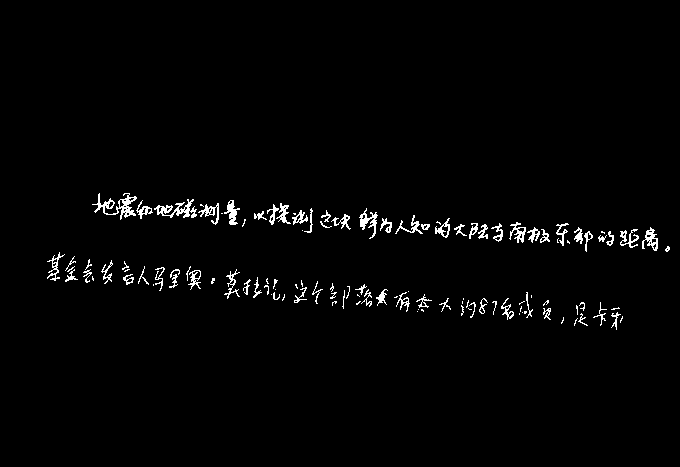 地震和地磁测量，以探测这块鲜为人知的大陆与南极东部的距离。
基金会发言人马里奥。莫拉说，这个部落有大约87名成员，是卡